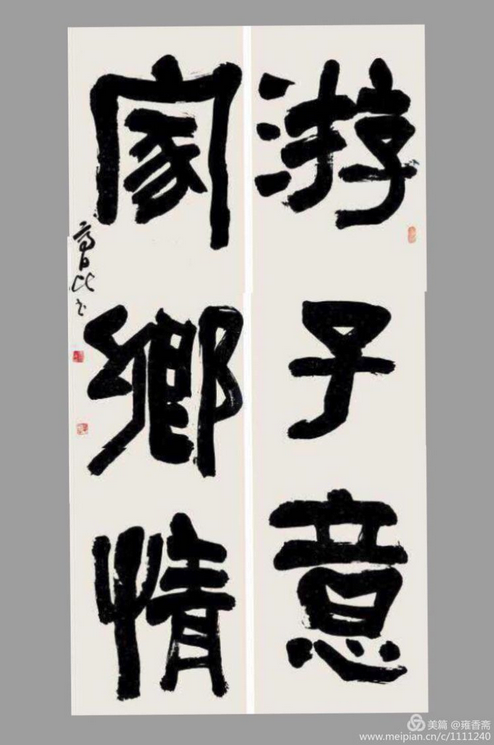 游子意
家鄉情
美篇 @雍香斋
www.meipian.cn/c/1111240